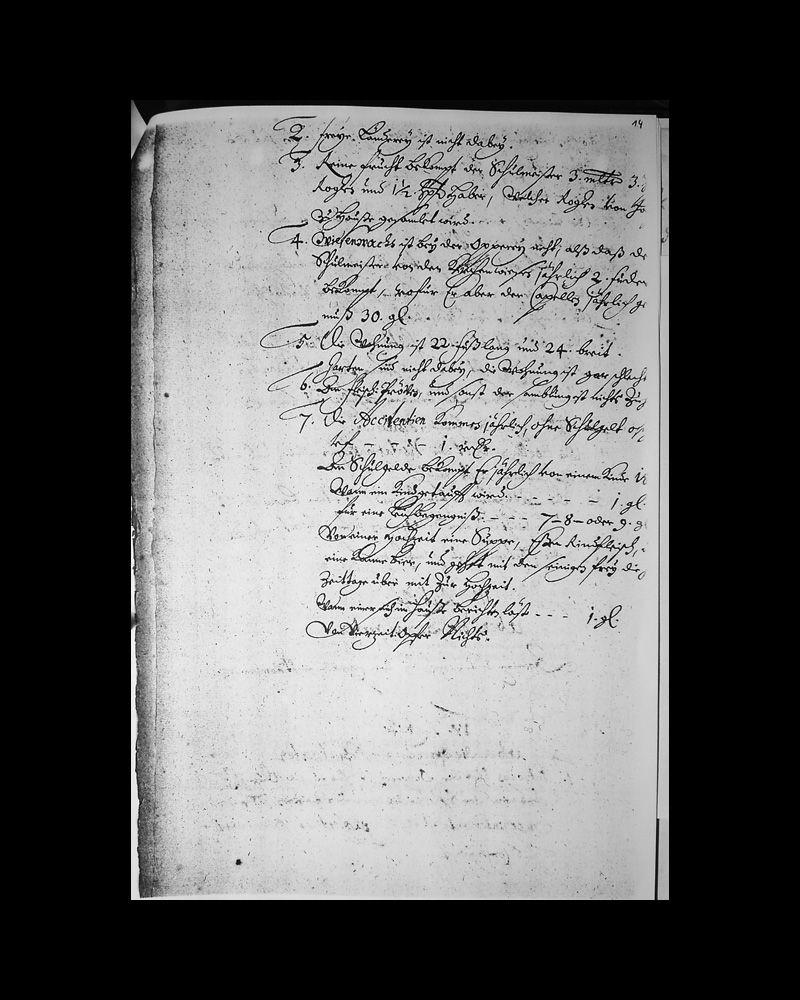 14
2. freye Länderey ist nicht dabey.
3. Reine frücht bekompt der Schulmeister 3. mltr 3.
Rogken und 1½ Haber, welcher Rogken von
zu Hauße gesamlet wird.
4. Wiesenwachs ist bey der Opperey nicht, alß daß
Schulmeister von den jährlich 2. füder
bekompt, wofür Er aber der Capellen jährlich
muß 30. gl.
5. Die Wohnung ist 22 fuß lang und 24. breit.
Garten sind nicht dabey, die Wohnung ist gar schlecht
6. und sonst der ist nichts
7. Die Accidentien kommen jährlich, ohne Schulgelt
1.
An Schulgelde bekompt Er jährlich von einem Kinde
Wann ein Kind getaufft wird - - - - - 1. gl.
für eine Leichbegengniß - - - 7-8- oder 9. g
Von einer Hochzeit eine Suppe, Rindfleisch,
eine Kanne bier, und gehet mit den seinigen frey die
Zeittage über mit zur Hochzeit.
Wann einer sich im Hauße berichten läst - - - 1. gl.
Von Vierzeit Opfer Nichts.